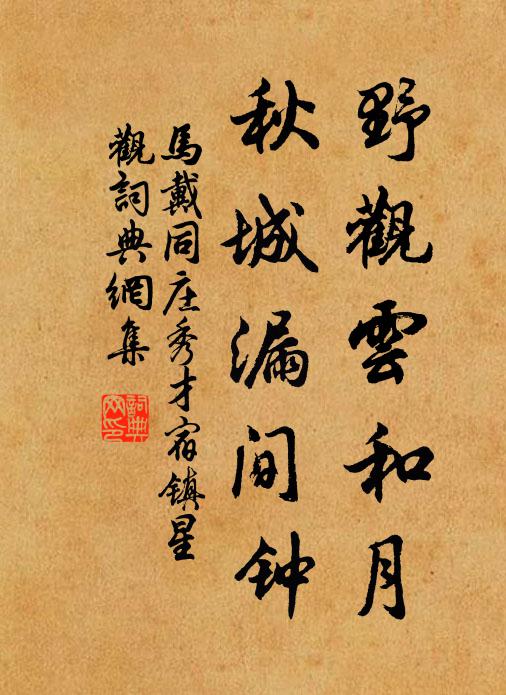 野觀雲和月
秋城漏间钟
馬戴同庄秀才宿镇星
觀詞典網集
詞典网印